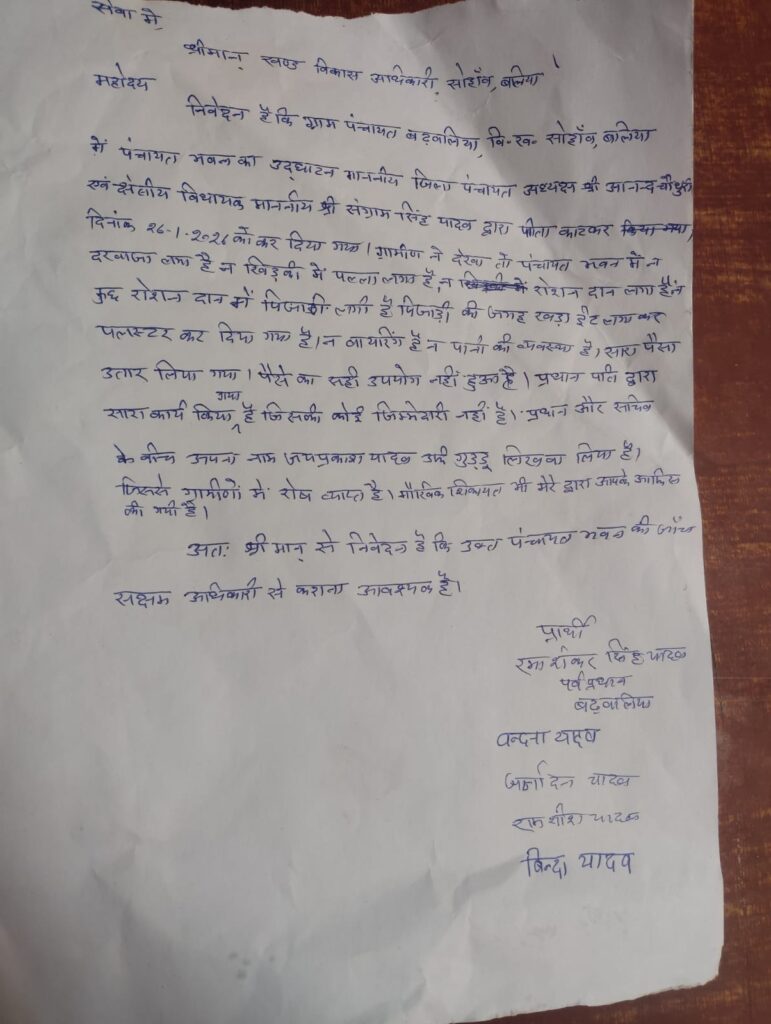 सेवा में,
श्रीमान् खण्ड विकास अधिकारी, सोहाँव, बलिया
महोदय
निवेदन है कि ग्राम पंचायत बढ़वलिया, वि.ख. सोहाँव, बलिया
में पंचायत भवन का उद्घाटन माननीय जिला पंचायत अध्यक्ष श्री आनन्द चौधरी
एवं क्षेत्रीय विधायक माननीय श्री संग्राम सिंह यादव द्वारा फीता काटकर किया गया,
दिनांक 26-1-2026 को कर दिया गया। ग्रामीण ने देखा तो पंचायत भवन में न
दरवाजा लगा है न खिड़की में पल्ला लगा है, न रोशन दान लगा है, न
कुछ रोशन दान में पिजाड़ी लगी है पिजाड़ी की जगह खड़ा ईट लगा कर
पलस्टर कर दिया गया है। न वायरिंग है न पानी की व्यवस्था है। सारा पैसा
उतार लिया गया। पैसे का सही उपयोग नहीं हुआ है। प्रधान पति द्वारा
सारा कार्य किया गया है जिसकी कोई जिम्मेदारी नहीं है। प्रधान और सचिव
के बीच अपना नाम जयप्रकाश यादव उर्फ गुड्डू लिखवा लिया है।
जिससे ग्रामीणों में रोष व्याप्त है। मौखिक शिकायत भी मेरे द्वारा आपके आफिस
की गयी है।
अतः श्रीमान् से निवेदन है कि उक्त पंचायत भवन की जाँच
सक्षम अधिकारी से कराना आवश्यक है।
प्रार्थी
रमाशंकर सिंह यादव
पूर्व प्रधान
बढ़वलिया
वन्दना यादव
जर्नादन यादव
रामाशीश यादव
बिन्दा यादव